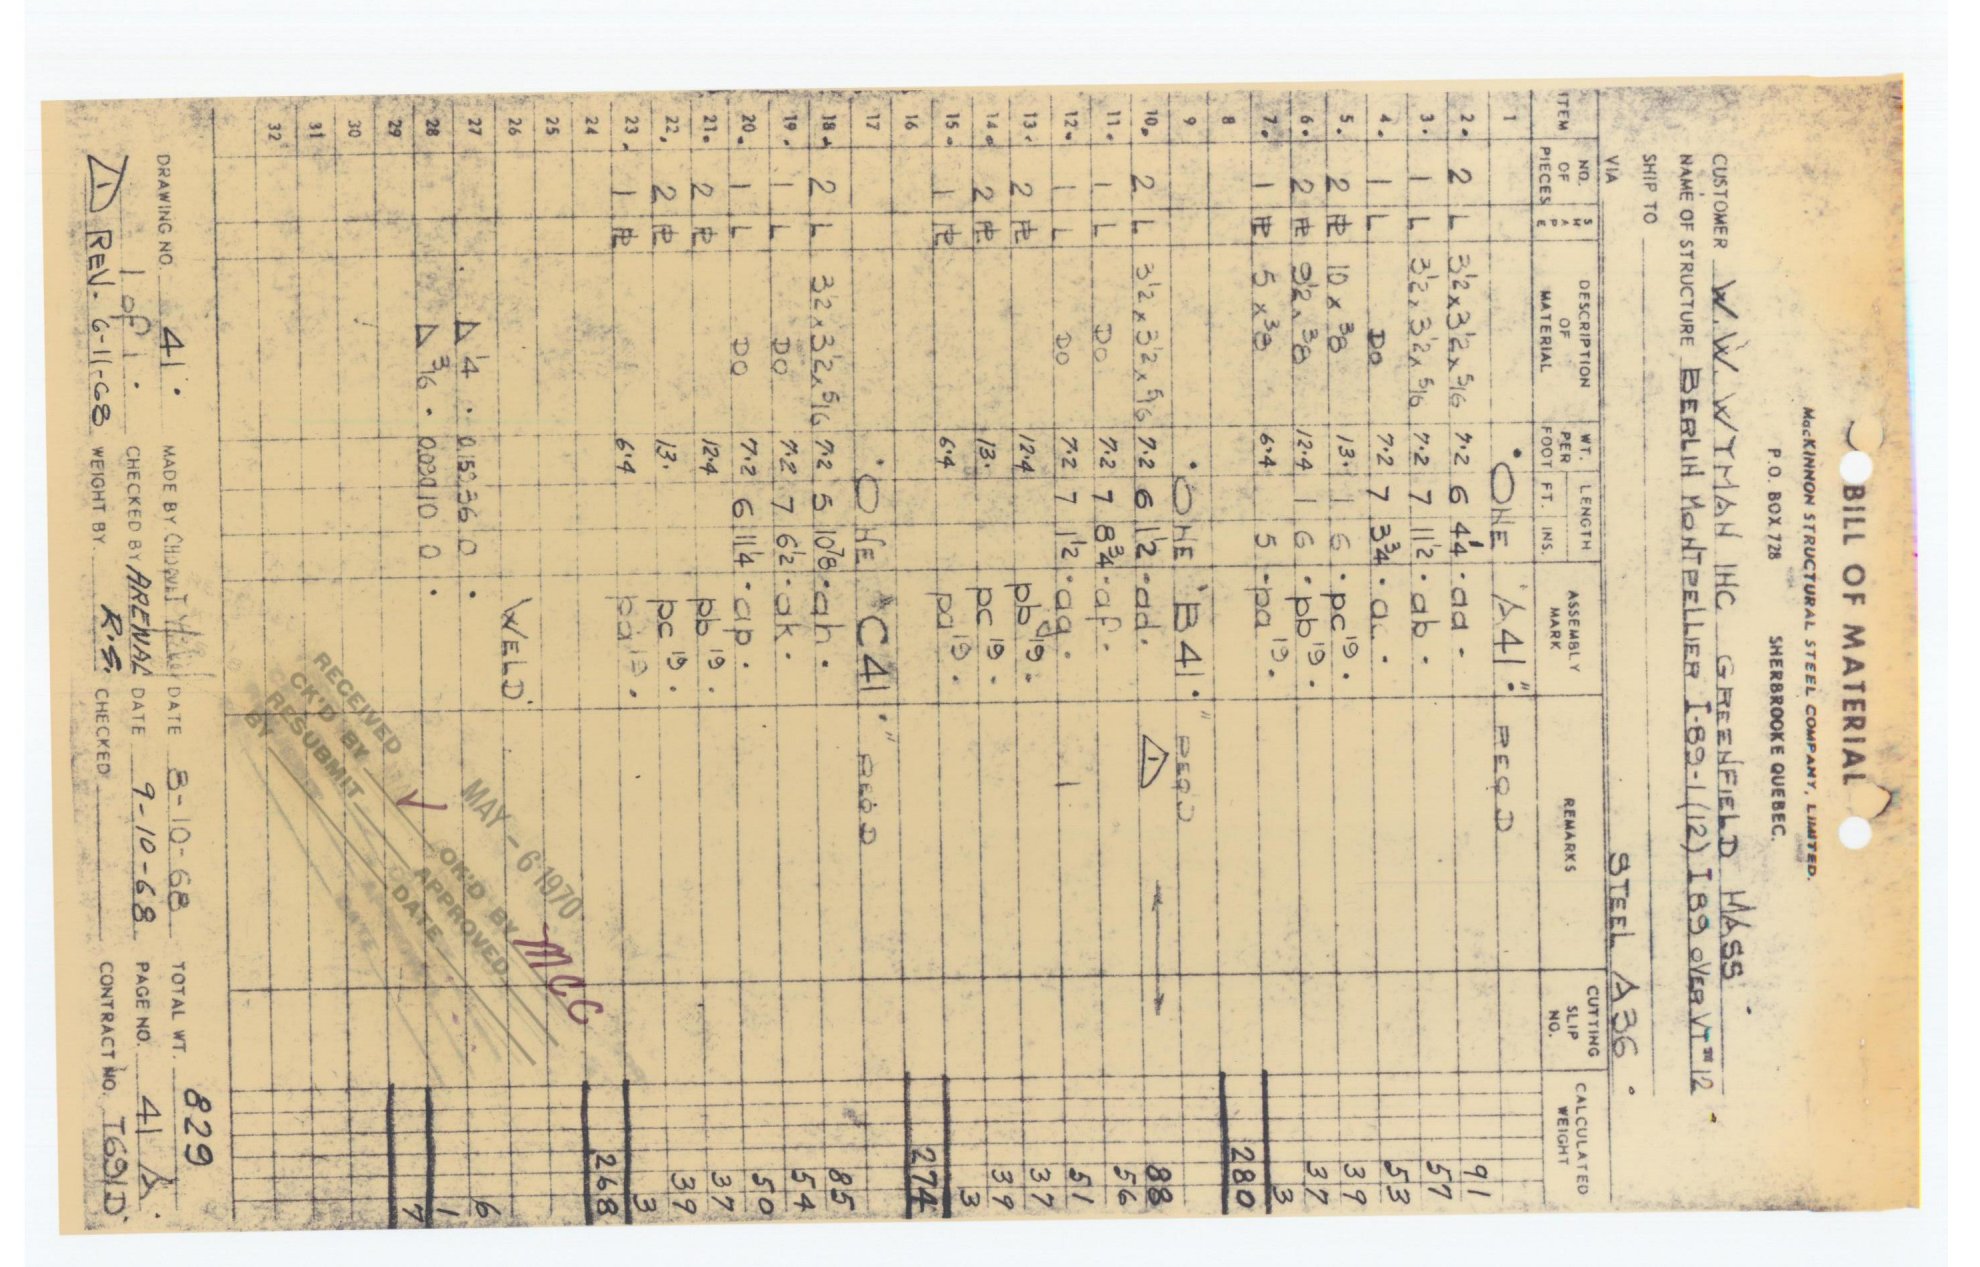 BILL OF MATERIAL
MacKINNON STRUCTURAL STEEL COMPANY, LIMITED.
P.O. BOX 728 SHERBROOKE QUEBEC.
CUSTOMER W.W. WYMAN INC GREENFIELD MASS.
NAME OF STRUCTURE BERLIN MONTPELLIER I-89-1(12) I89 OVER VT #12
SHIP TO
VIA STEEL A36.
ITEM NO. OF PIECES SHAPE DESCRIPTION OF MATERIAL WT. PER FOOT LENGTH FT. INS. ASSEMBLY MARK REMARKS CUTTING SLIP NO. CALCULATED WEIGHT
1 ONE "A41." REQD
2. 2 L 3½ x 3½ x 5/16 7.2 6 4¼ . aa . 91
3. 1 L 3½ x 3½ x 5/16 7.2 7 11½ . ab . 57
4. 1 L DO 7.2 7 3¾ . ac . 53
5. 2 PL 10 x 3/8 13. 1 6 . pc19. 39
6. 2 PL 9½ x 3/8 12.4 1 6 . pb19. 37
7. 1 PL 5 x 3/8 6.4 5 . pa19. 3
8 280
9 ONE "B41." REQD
10. 2 L 3½ x 3½ x 5/16 7.2 6 1½ . ad. 1 88
11. 1 L DO 7.2 7 8¾ . af . 56
12. 1 L DO 7.2 7 1½ . ag . 51
13. 2 PL 12.4 pb19. 37
14. 2 PL 13. pc19. 39
15. 1 PL 6.4 pa19. 3
16 274
17 ONE "C41." REQD
18. 2 L 3½ x 3½ x 5/16 7.2 5 10⅞ . ah . 85
19. 1 L DO 7.2 7 6½ . ak . 54
20. 1 L DO 7.2 6 11¼ . ap . 50
21. 2 PL 12.4 pb19. 37
22. 2 PL 13. pc19. 39
23. 1 PL 6.4 pa19. 3
24 268
25
26 WELD.
27 ¼ . 0.15936 0 . 6
28 3/16 . 0 . 1
29 7
30
31
32
MAY - 6 1970
RECEIVED
CK'D BY OK'D BY MCC
RESUBMIT APPROVED
BY DATE
829
DRAWING NO. 41. MADE BY DATE 8-10-68 TOTAL WT.
1 OF 1. CHECKED BY ARENAL DATE 9-10-68 PAGE NO. 41 A.
1 REV. 6-11-68 WEIGHT BY R.S. CHECKED CONTRACT NO. T691D.